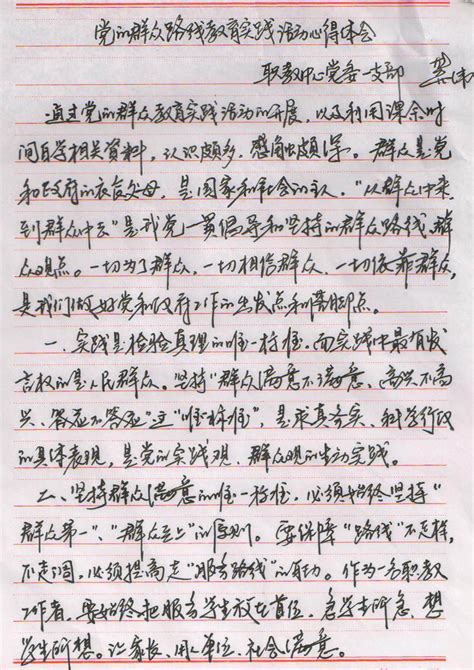 党的群众路线教育实践活动心得体会
职教中心党委一支部 梁伟
通过党的群众教育实践活动的开展，以及利用课余时
间自学相关资料，认识颇多，感触颇深。群众是党
和政府的衣食父母，是国家和社会的主人，“从群众中来，
到群众中去”是我党一贯倡导和坚持的群众路线、群
众观点。一切为了群众，一切相信群众，一切依靠群众，
是我们做好党和政府工作的出发点和落脚点。
一、实践是检验真理的唯一标准，而实践中最有发
言权的是人民群众。坚持“群众满意不满意、高兴不高
兴、答应不答应”这“唯一标准”，是求真务实、科学行政
的具体表现，是党的实践观、群众观的生动实践。
二、坚持群众满意的唯一标准，必须始终坚持“
群众第一”、“群众至上”的原则。要保障“路线”不走样，
不走调，必须提高走“服务路线”的自动。作为一名职教
工作者，要始终把服务学生放在首位，急学生所急，想
学生所想。让家长、用人单位、社会满意。